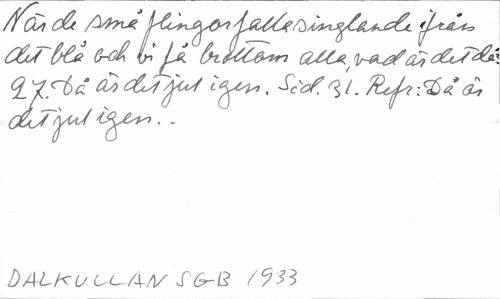 När de små flingor falla singlande ifrån
det blå och vi få brottom alla, vad är det då:
27. Då är det jul igen. Sid. 31. Refr: Då är
det jul igen..
DALKULLAN SGB 1933